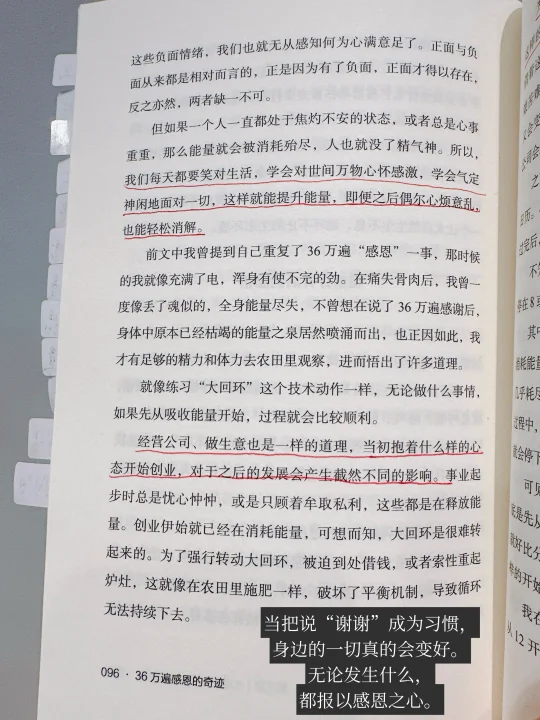 这些负面情绪，我们也就无从感知何为心满意足了。正面与负
面从来都是相对而言的，正是因为有了负面，正面才得以存在，
反之亦然，两者缺一不可。
但如果一个人一直都处于焦灼不安的状态，或者总是心事
重重，那么能量就会被消耗殆尽，人也就没了精气神。所以，
我们每天都要笑对生活，学会对世间万物心怀感激，学会气定
神闲地面对一切，这样就能提升能量，即便之后偶尔心烦意乱，
也能轻松消解。
前文中我曾提到自己重复了36万遍“感恩”一事，那时候
的我就像充满了电，浑身有使不完的劲。在痛失骨肉后，我曾一
度像丢了魂似的，全身能量尽失，不曾想在说了36万遍感谢后，
身体中原本已经枯竭的能量之泉居然喷涌而出，也正因如此，我
才有足够的精力和体力去农田里观察，进而悟出了许多道理。
就像练习“大回环”这个技术动作一样，无论做什么事情，
如果先从吸收能量开始，过程就会比较顺利。
经营公司、做生意也是一样的道理，当初抱着什么样的心
态开始创业，对于之后的发展会产生截然不同的影响。事业起
步时总是忧心忡忡，或是只顾着牟取私利，这些都是在释放能
量。创业伊始就已经在消耗能量，可想而知，大回环是很难转
起来的。为了强行转动大回环，被迫到处借钱，或者索性重起
炉灶，这就像在农田里施肥一样，破坏了平衡机制，导致循环
无法持续下去。
096 · 36万遍感恩的奇迹
当把说“谢谢”成为习惯，
身边的一切真的会变好。
无论发生什么，
都报以感恩之心。